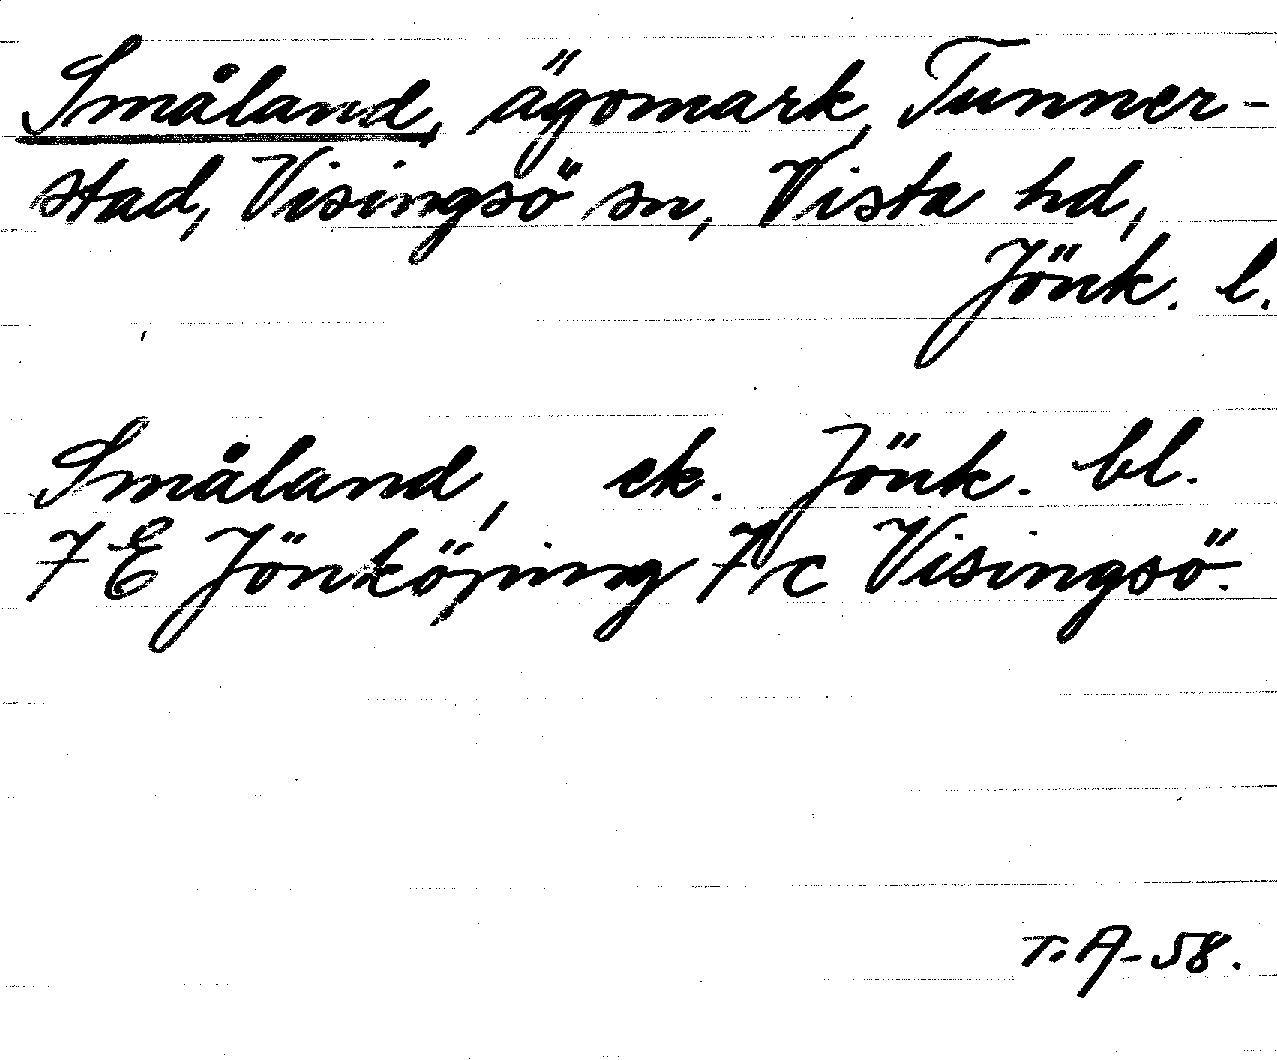 Småland, ägomark, Tunner-
stad, Visingsö sn, Vista hd,
Jönk. l.
Småland, ek. Jönk. bl.
7 E Jönköping 7 c Visingsö.
T. A-58.